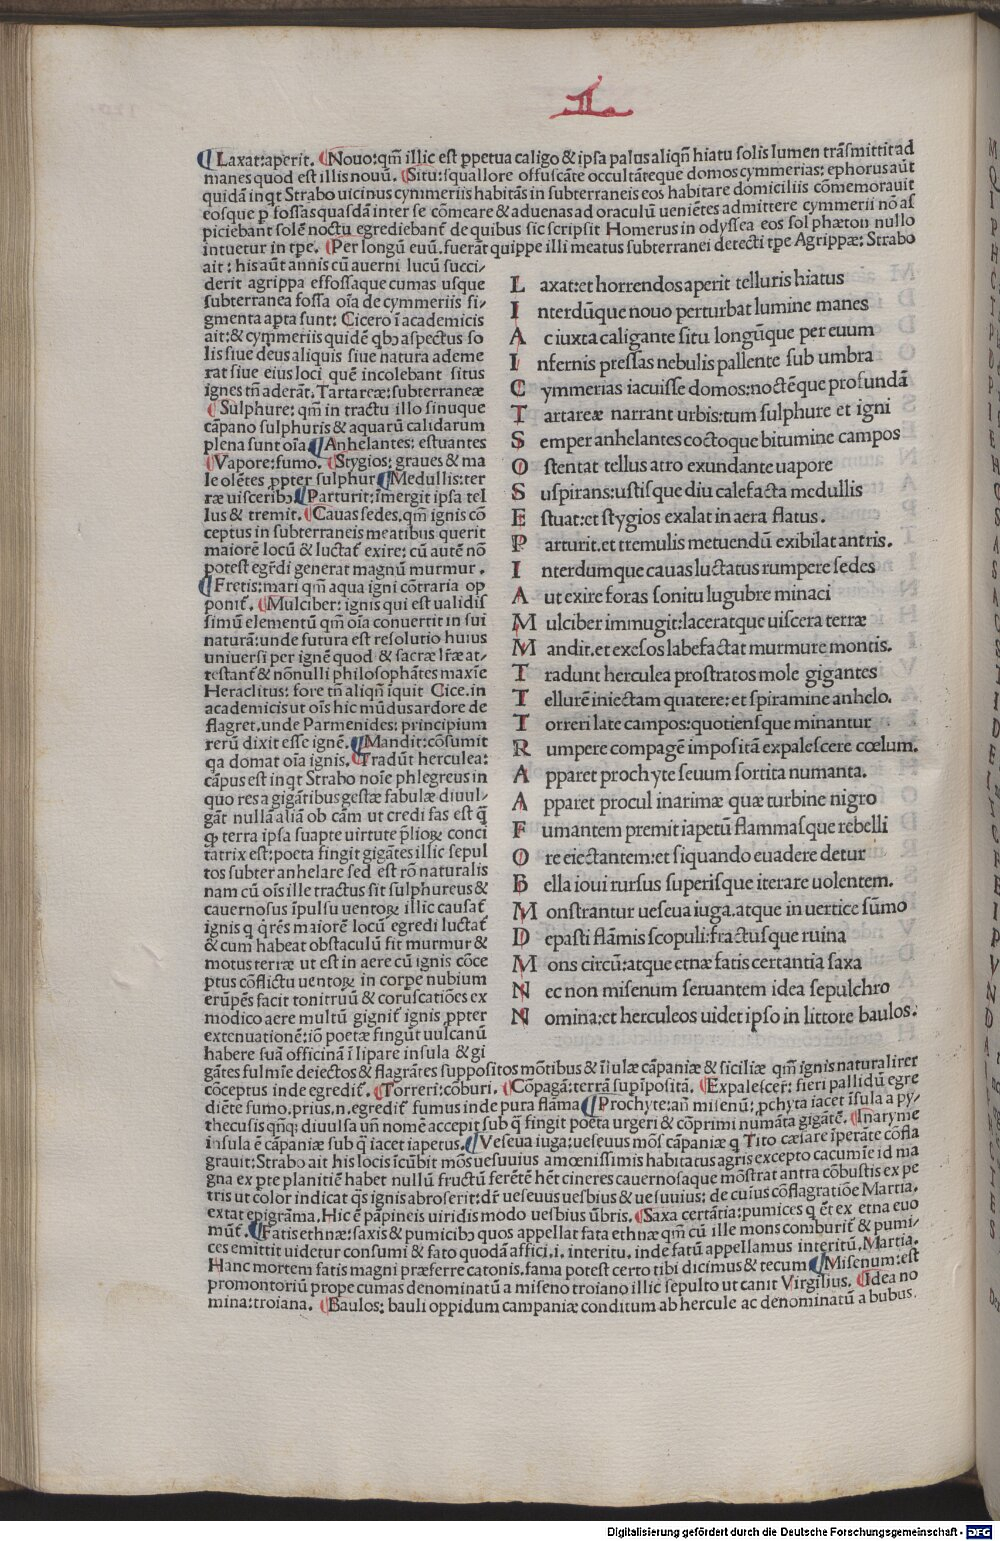 ¶Laxat:aperit. ¶Nouo:qm̄ illic est ꝑpetua caligo & ipsa palus aliqñ hiatu solis lumen trãsmittit ad
manes quod est illis nouũ. ¶Situ:squallore offuscãte occultãteque domos cymmerias: ephorus aũt
quidã inqt Strabo uicinus cymmeriis habitãs in subterraneis eos habitare domiciliis cõmemorauit
eosque ꝑ fossas quasdã inter se cõmeare & aduenas ad oraculũ ueniẽtes admittere cymmerii nõ as
piciebant solẽ noctu egrediebant̃ de quibus sic scripsit Homerus in odyssea eos sol phæton nullo
intuetur in tpe. ¶Per longũ euũ.fuerãt quippe illi meatus subterranei detecti tpe Agrippæ: Strabo
ait: his aũt annis cũ auerni lucũ succi/
derit agrippa effossaque cumas usque
subterranea fossa oĩa de cymmeriis fi/
gmenta apta sunt: Cicero ĩ academicis
ait:& cymmeriis quidẽ qbꝫ aspectus so
lis siue deus aliquis siue natura ademe
rat siue eius loci quẽ incolebant situs
ignes tñ aderãt. Tartareæ:subterraneæ
¶Sulphure: qm̄ in tractu illo sinuque
cãpano sulphuris & aquarũ calidarum
plena sunt oĩa ¶Anhelantes: estuantes
¶Vapore:fumo. ¶Stygios: graues & ma
le olẽtes ꝓpter sulphur ¶Medullis:ter
ræ uisceribꝫ ¶Parturit:ĩmergit ipsa tel
lus & tremit. ¶Cauas sedes.qm̄ ignis cõ
ceptus in subterraneis meatibus querit
maiorẽ locũ & luctat̃ exire: cũ autẽ nõ
potest egr̃di generat magnũ murmur.
¶Fretis:mari qm̄ aqua igni cõtraria op
ponit̃. ¶Mulciber: ignis qui est ualidis
simũ elementũ qm̄ oĩa conuertit in sui
naturã:unde futura est resolutio huius
uniuersi per ignẽ quod & sacræ lr̃æ at/
testant̃ & nõnulli philosophãtes maxĩe
Heraclitus: fore tñ aliqñ ĩquit Cice.in
academicis ut oĩs hic mũdus ardore de
flagret.unde Parmenides: principium
rerũ dixit esse ignẽ. ¶Mandit:cõsumit
qa domat oĩa ignis. ¶Tradũt herculea:
cãpus est inqt Strabo noĩe phlegreus in
quo res a gigãtibus gestæ fabulæ diuul/
gãt nullã aliã ob cãm ut credi fas est q̃
ꝙ terra ipsa suapte uirtute p̃lioꝝ conci
tatrix est:poeta fingit gigãtes illic sepul
tos subter anhelare sed est rõ naturalis
nam cũ oĩs ille tractus sit sulphureus &
cauernosus ĩpulsu uentoꝝ illic causat̃
ignis q q̃rẽs maiorẽ locũ egredi luctat̃
& cum habeat obstaculũ fit murmur &
motus terræ ut est in aere cũ ignis cõce
ptus cõflictu uentoꝝ in corpe nubium
erũpẽs facit tonitruũ & coruscatiões ex
modico aere multũ gignit̃ ignis ꝓpter
extenuationẽ:iõ poetæ fingũt uulcanũ
habere suã officinã ĩ lipare insula & gi
L axat:et horrendos aperit telluris hiatus
I nterdũque nouo perturbat lumine manes
A c iuxta caligante situ longũque per euum
I nfernis pressas nebulis pallente sub umbra
C ymmerias iacuisse domos:noctẽque profundã
T artareæ narrant urbis:tum sulphure et igni
S emper anhelantes coctoque bitumine campos
O stentat tellus atro exundante uapore
S uspirans:ustisque diu calefacta medullis
E stuat:et stygios exalat in aera flatus.
P arturit.et tremulis metuendũ exibilat antris.
I nterdumque cauas luctatus rumpere sedes
A ut exire foras sonitu lugubre minaci
M ulciber immugit:laceratque uiscera terræ
M andit.et exesos labefactat murmure montis.
T radunt herculea prostratos mole gigantes
T ellurẽ iniectam quatere:et spiramine anhelo.
T orreri late campos:quotiensque minantur
R umpere compagẽ impositã expalescere cœlum.
A pparet prochyte seuum sortita numanta.
A pparet procul inarimæ quæ turbine nigro
F umantem premit iapetũ flammasque rebelli
O re eiectantem:et siquando euadere detur
B ella ioui rursus superisque iterare uolentem.
M onstrantur ueseua iuga.atque in uertice sũmo
D epasti flãmis scopuli:fractusque ruina
M ons circũ:atque etnæ fatis certantia saxa
N ec non misenum seruantem idea sepulchro
N omina:et herculeos uidet ipso in littore baulos.
gãtes fulmĩe deiectos & flagrãtes suppositos mõtibus & ĩsulæ cãpaniæ & siciliæ qm̄ ignis naturalirer
cõceptus inde egredit̃. ¶Torreri:cõburi. ¶Cõpagã:terrã supĩpositã. ¶Expalescer̃: fieri pallidũ egre
diẽte fumo.prius.n.egredit̃ fumus inde pura flãma ¶Prochyte:añ misenũ: ꝓchyta iacet ĩsula a py/
thecusis qñq: diuulsa uñ nomẽ accepit sub q̃ fingit poeta urgeri & cõprimi numãta gigãtẽ. ¶Inaryme
insula ẽ cãpaniæ sub q̃ iacet iapetus. ¶Veseua iuga:ueseuus mõs cãpaniæ q Tito cæsare ĩperãte cõfla
grauit:Strabo ait his locis ĩcũbit mõs uesuuius amœnissimis habitatus agris excepto cacumĩe id ma
gna ex pte planitiẽ habet nullũ fructũ ferẽtẽ hẽt cineres cauernosaque mõstrat antra cõbustis ex pe
tris ut color indicat q̃s ignis abroserit: dr̃ ueseuus uesbius & uesuuius: de cuius cõflagratiõe Martia.
extat epigrãma.Hic ẽ pãpineis uiridis modo uesbius ũbris. ¶Saxa certãtia:pumices q ẽt ex etna euo
mũt̃. ¶Fatis ethnæ:saxis & pumicibꝫ quos appellat fata ethnæ qm̄ cũ ille mons comburit̃ & pumi/
ces emittit uidetur consumi & fato quodã affici.i.interitu.inde fatũ appellamus interitũ.Martia.
Hanc mortem fatis magni præferre catonis.fama potest certo tibi dicimus & tecum ¶Misenum:est
promontoriũ prope cumas denominatũ a miseno troiano illic sepulto ut canit Virgilius. ¶Idea no
mina:troiana. ¶Baulos: bauli oppidum campaniæ conditum ab hercule ac denominatũ a bubus.
Digitalisierung gefördert durch die Deutsche Forschungsgemeinschaft - DFG